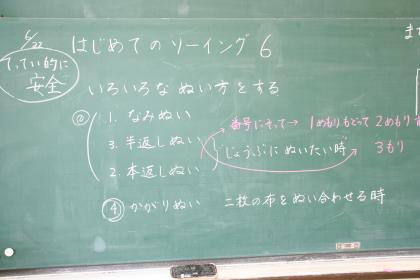 6/22
はじめてのソーイング 6
てってい的に
安全
いろいろなぬい方をする
1. なみぬい
番号にそって→ 1めもりもどって 2めもり
3. 半返しぬい
じょうぶにぬいたい時
3もり
2. 本返しぬい
④ かがりぬい 二枚の布をぬい合わせる時